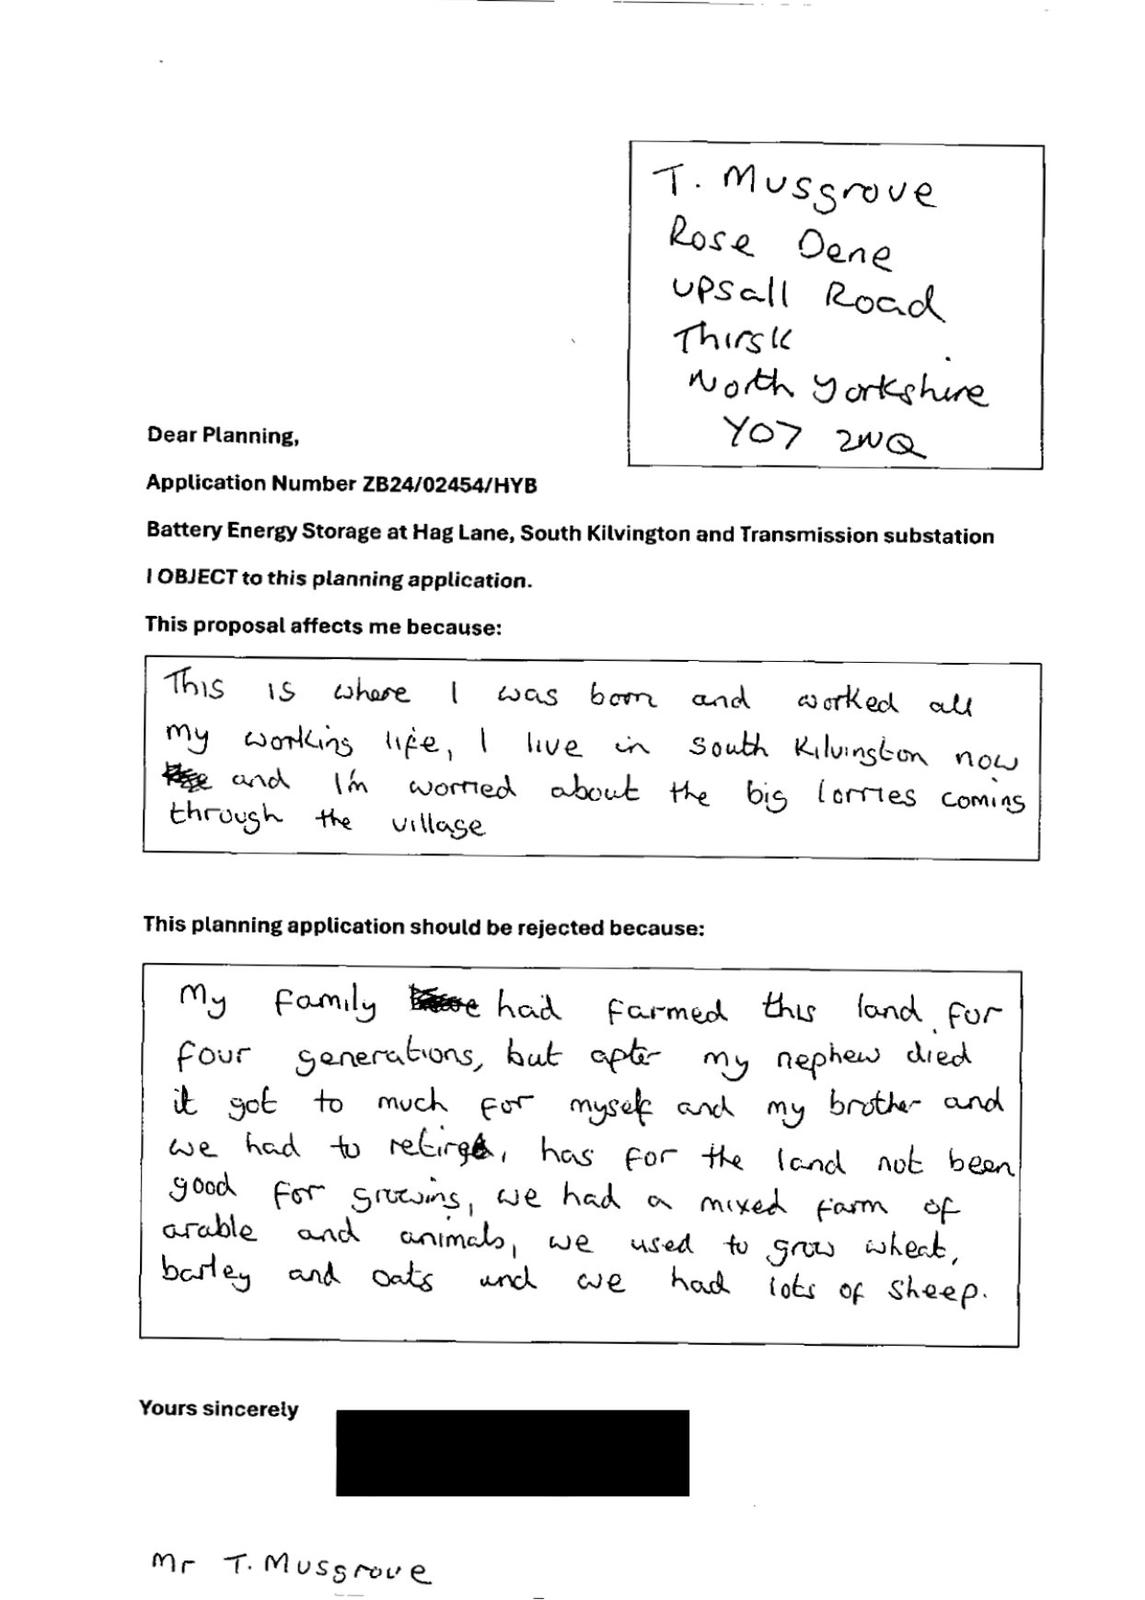 T. Musgrove
Rose Dene
Upsall Road
Thirsk
North Yorkshire
YO7 2NQ
Dear Planning,
Application Number ZB24/02454/HYB
Battery Energy Storage at Hag Lane, South Kilvington and Transmission substation
I OBJECT to this planning application.
This proposal affects me because:
This is where I was born and worked all
my working life, I live in South Kilvington now
and I'm worried about the big lorries coming
through the village
This planning application should be rejected because:
My family had farmed this land for
four generations, but after my nephew died
it got to much for myself and my brother and
we had to retire, has for the land not been
good for growing, we had a mixed farm of
arable and animals, we used to grow wheat,
barley and oats and we had lots of sheep.
Yours sincerely
Mr T. Musgrove